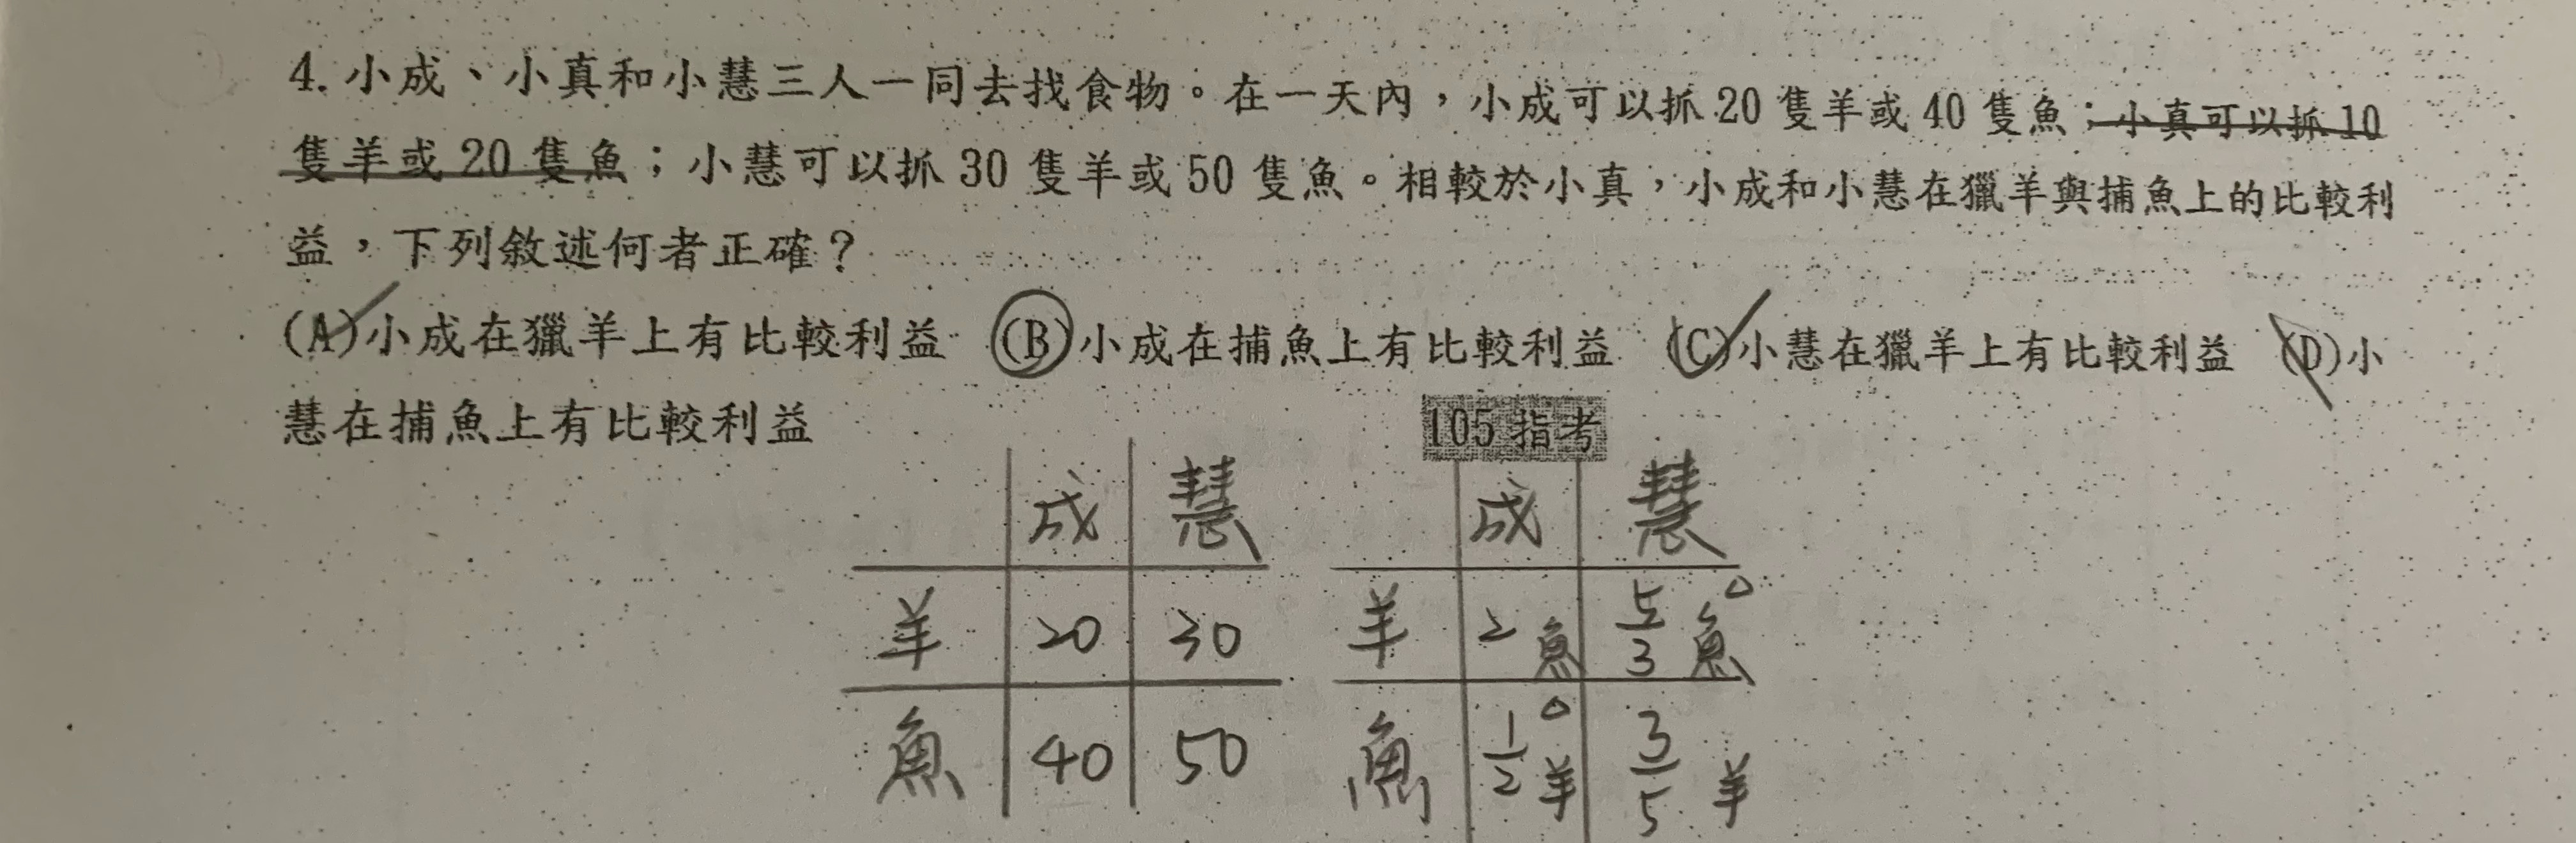 4. 小成、小真和小慧三人一同去找食物。在一天內，小成可以抓 20 隻羊或 40 隻魚；小真可以抓 10
隻羊或 20 隻魚；小慧可以抓 30 隻羊或 50 隻魚。相較於小真，小成和小慧在獵羊與捕魚上的比較利
益，下列敘述何者正確？
(A)小成在獵羊上有比較利益 (B)小成在捕魚上有比較利益 (C)小慧在獵羊上有比較利益 (D)小
慧在捕魚上有比較利益
105 指考
成 慧 成 慧
羊 20 30 羊 2魚 5/3魚
魚 40 50 魚 1/2羊 3/5羊